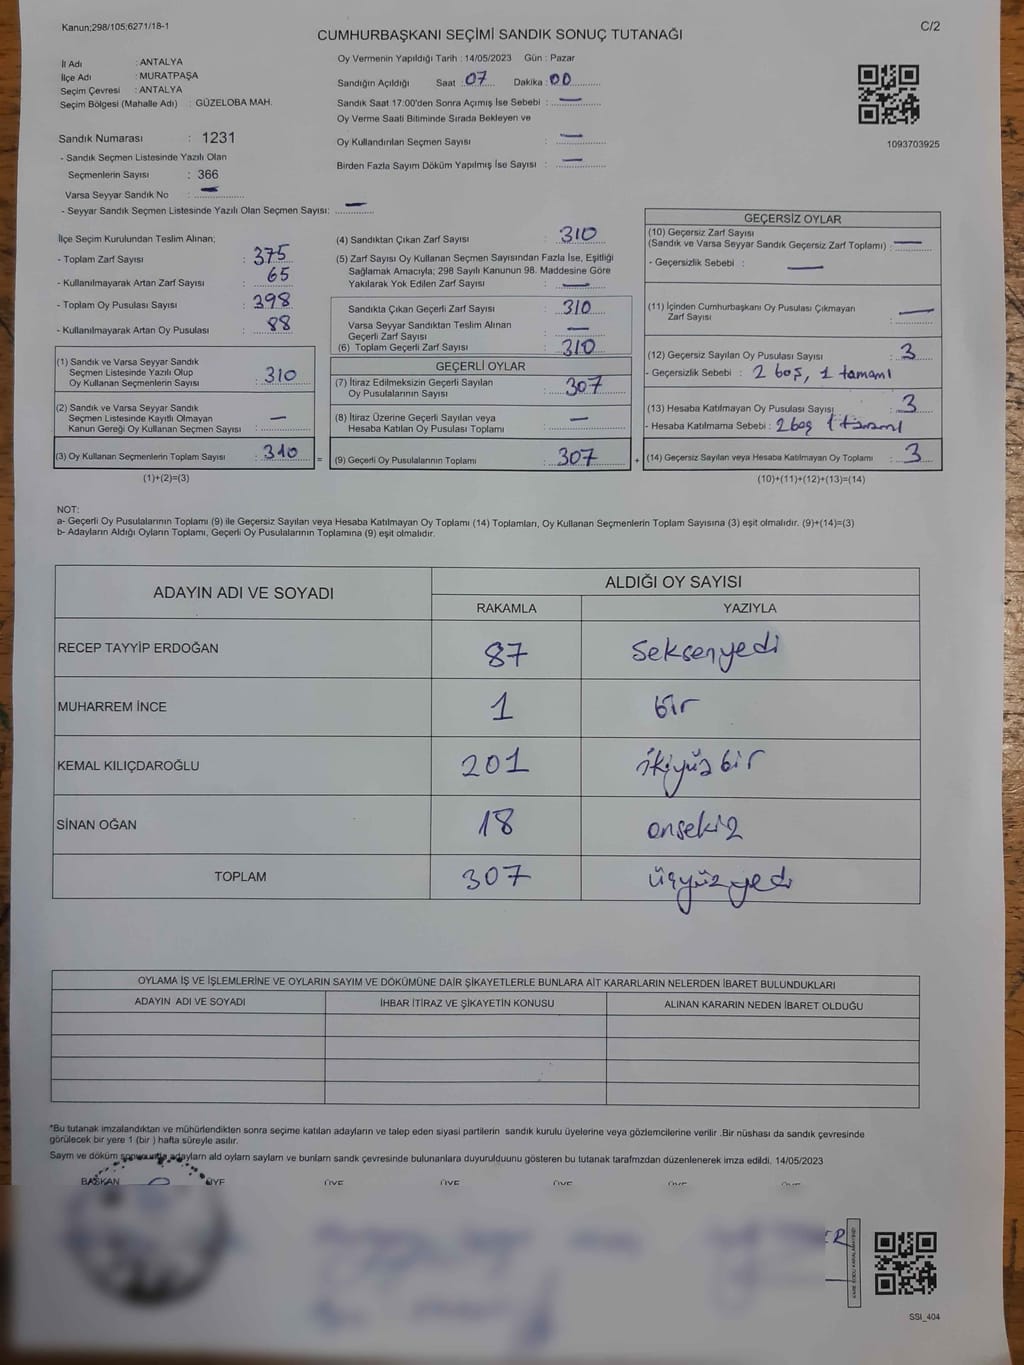 Kanun;298/105;6271/18-1
C/2
CUMHURBAŞKANI SEÇİMİ SANDIK SONUÇ TUTANAĞI
İl Adı : ANTALYA
İlçe Adı : MURATPAŞA
Seçim Çevresi : ANTALYA
Seçim Bölgesi (Mahalle Adı) : GÜZELOBA MAH.
Sandık Numarası : 1231
- Sandık Seçmen Listesinde Yazılı Olan
Seçmenlerin Sayısı : 366
Varsa Seyyar Sandık No : —
- Seyyar Sandık Seçmen Listesinde Yazılı Olan Seçmen Sayısı: —
Oy Vermenin Yapıldığı Tarih : 14/05/2023 Gün : Pazar
Sandığın Açıldığı Saat : 07 Dakika : 00
Sandık Saat 17:00'den Sonra Açımış İse Sebebi : —
Oy Verme Saati Bitiminde Sırada Bekleyen ve
Oy Kullandırılan Seçmen Sayısı : —
Birden Fazla Sayım Döküm Yapılmış İse Sayısı : —
1093703925
İlçe Seçim Kurulundan Teslim Alınan;
- Toplam Zarf Sayısı : 375
- Kullanılmayarak Artan Zarf Sayısı : 65
- Toplam Oy Pusulası Sayısı : 398
- Kullanılmayarak Artan Oy Pusulası : 88
(1) Sandık ve Varsa Seyyar Sandık
Seçmen Listesinde Yazılı Olup
Oy Kullanan Seçmenlerin Sayısı : 310
(2) Sandık ve Varsa Seyyar Sandık
Seçmen Listesinde Kayıtlı Olmayan
Kanun Gereği Oy Kullanan Seçmen Sayısı : —
(3) Oy Kullanan Seçmenlerin Toplam Sayısı : 310
(1)+(2)=(3)
(4) Sandıktan Çıkan Zarf Sayısı : 310
(5) Zarf Sayısı Oy Kullanan Seçmen Sayısından Fazla İse, Eşitliği
Sağlamak Amacıyla; 298 Sayılı Kanunun 98. Maddesine Göre
Yakılarak Yok Edilen Zarf Sayısı : —
Sandıkta Çıkan Geçerli Zarf Sayısı : 310
Varsa Seyyar Sandıktan Teslim Alınan
Geçerli Zarf Sayısı : —
(6) Toplam Geçerli Zarf Sayısı : 310
GEÇERLİ OYLAR
(7) İtiraz Edilmeksizin Geçerli Sayılan
Oy Pusulalarının Sayısı : 307
(8) İtiraz Üzerine Geçerli Sayılan veya
Hesaba Katılan Oy Pusulası Toplamı : —
= (9) Geçerli Oy Pusulalarının Toplamı : 307
GEÇERSİZ OYLAR
(10) Geçersiz Zarf Sayısı
(Sandık ve Varsa Seyyar Sandık Geçersiz Zarf Toplamı) : —
- Geçersizlik Sebebi : —
(11) İçinden Cumhurbaşkanı Oy Pusulası Çıkmayan
Zarf Sayısı : —
(12) Geçersiz Sayılan Oy Pusulası Sayısı : 3
- Geçersizlik Sebebi : 2 boş, 1 tamamı
(13) Hesaba Katılmayan Oy Pusulası Sayısı : 3
- Hesaba Katılmama Sebebi : 2 boş 1 tamamı
+ (14) Geçersiz Sayılan veya Hesaba Katılmayan Oy Toplamı : 3
(10)+(11)+(12)+(13)=(14)
NOT:
a- Geçerli Oy Pusulalarının Toplamı (9) ile Geçersiz Sayılan veya Hesaba Katılmayan Oy Toplamı (14) Toplamları, Oy Kullanan Seçmenlerin Toplam Sayısına (3) eşit olmalıdır. (9)+(14)=(3)
b- Adayların Aldığı Oyların Toplamı, Geçerli Oy Pusulalarının Toplamına (9) eşit olmalıdır.
ADAYIN ADI VE SOYADI
ALDIĞI OY SAYISI
RAKAMLA YAZIYLA
RECEP TAYYİP ERDOĞAN 87 seksenyedi
MUHARREM İNCE 1 bir
KEMAL KILIÇDAROĞLU 201 ikiyüz bir
SİNAN OĞAN 18 onsekiz
TOPLAM 307 üçyüz yedi
OYLAMA İŞ VE İŞLEMLERİNE VE OYLARIN SAYIM VE DÖKÜMÜNE DAİR ŞİKAYETLERLE BUNLARA AİT KARARLARIN NELERDEN İBARET BULUNDUKLARI
ADAYIN ADI VE SOYADI İHBAR İTİRAZ VE ŞİKAYETİN KONUSU ALINAN KARARIN NEDEN İBARET OLDUĞU
*Bu tutanak imzalandıktan ve mühürlendikten sonra seçime katılan adayların ve talep eden siyasi partilerin sandık kurulu üyelerine veya gözlemcilerine verilir .Bir nüshası da sandık çevresinde
görülecek bir yere 1 (bir ) hafta süreyle asılır.
Sayım ve döküm sonucunda adayların ald oyların sayıları ve bunların sandk çevresinde bulunanlara duyurulduunu gösteren bu tutanak tarafmzdan düzenlenerek imza edildi. 14/05/2023
BAŞKAN ÜYE ÜYE ÜYE ÜYE ÜYE ÜYE
SSI_404